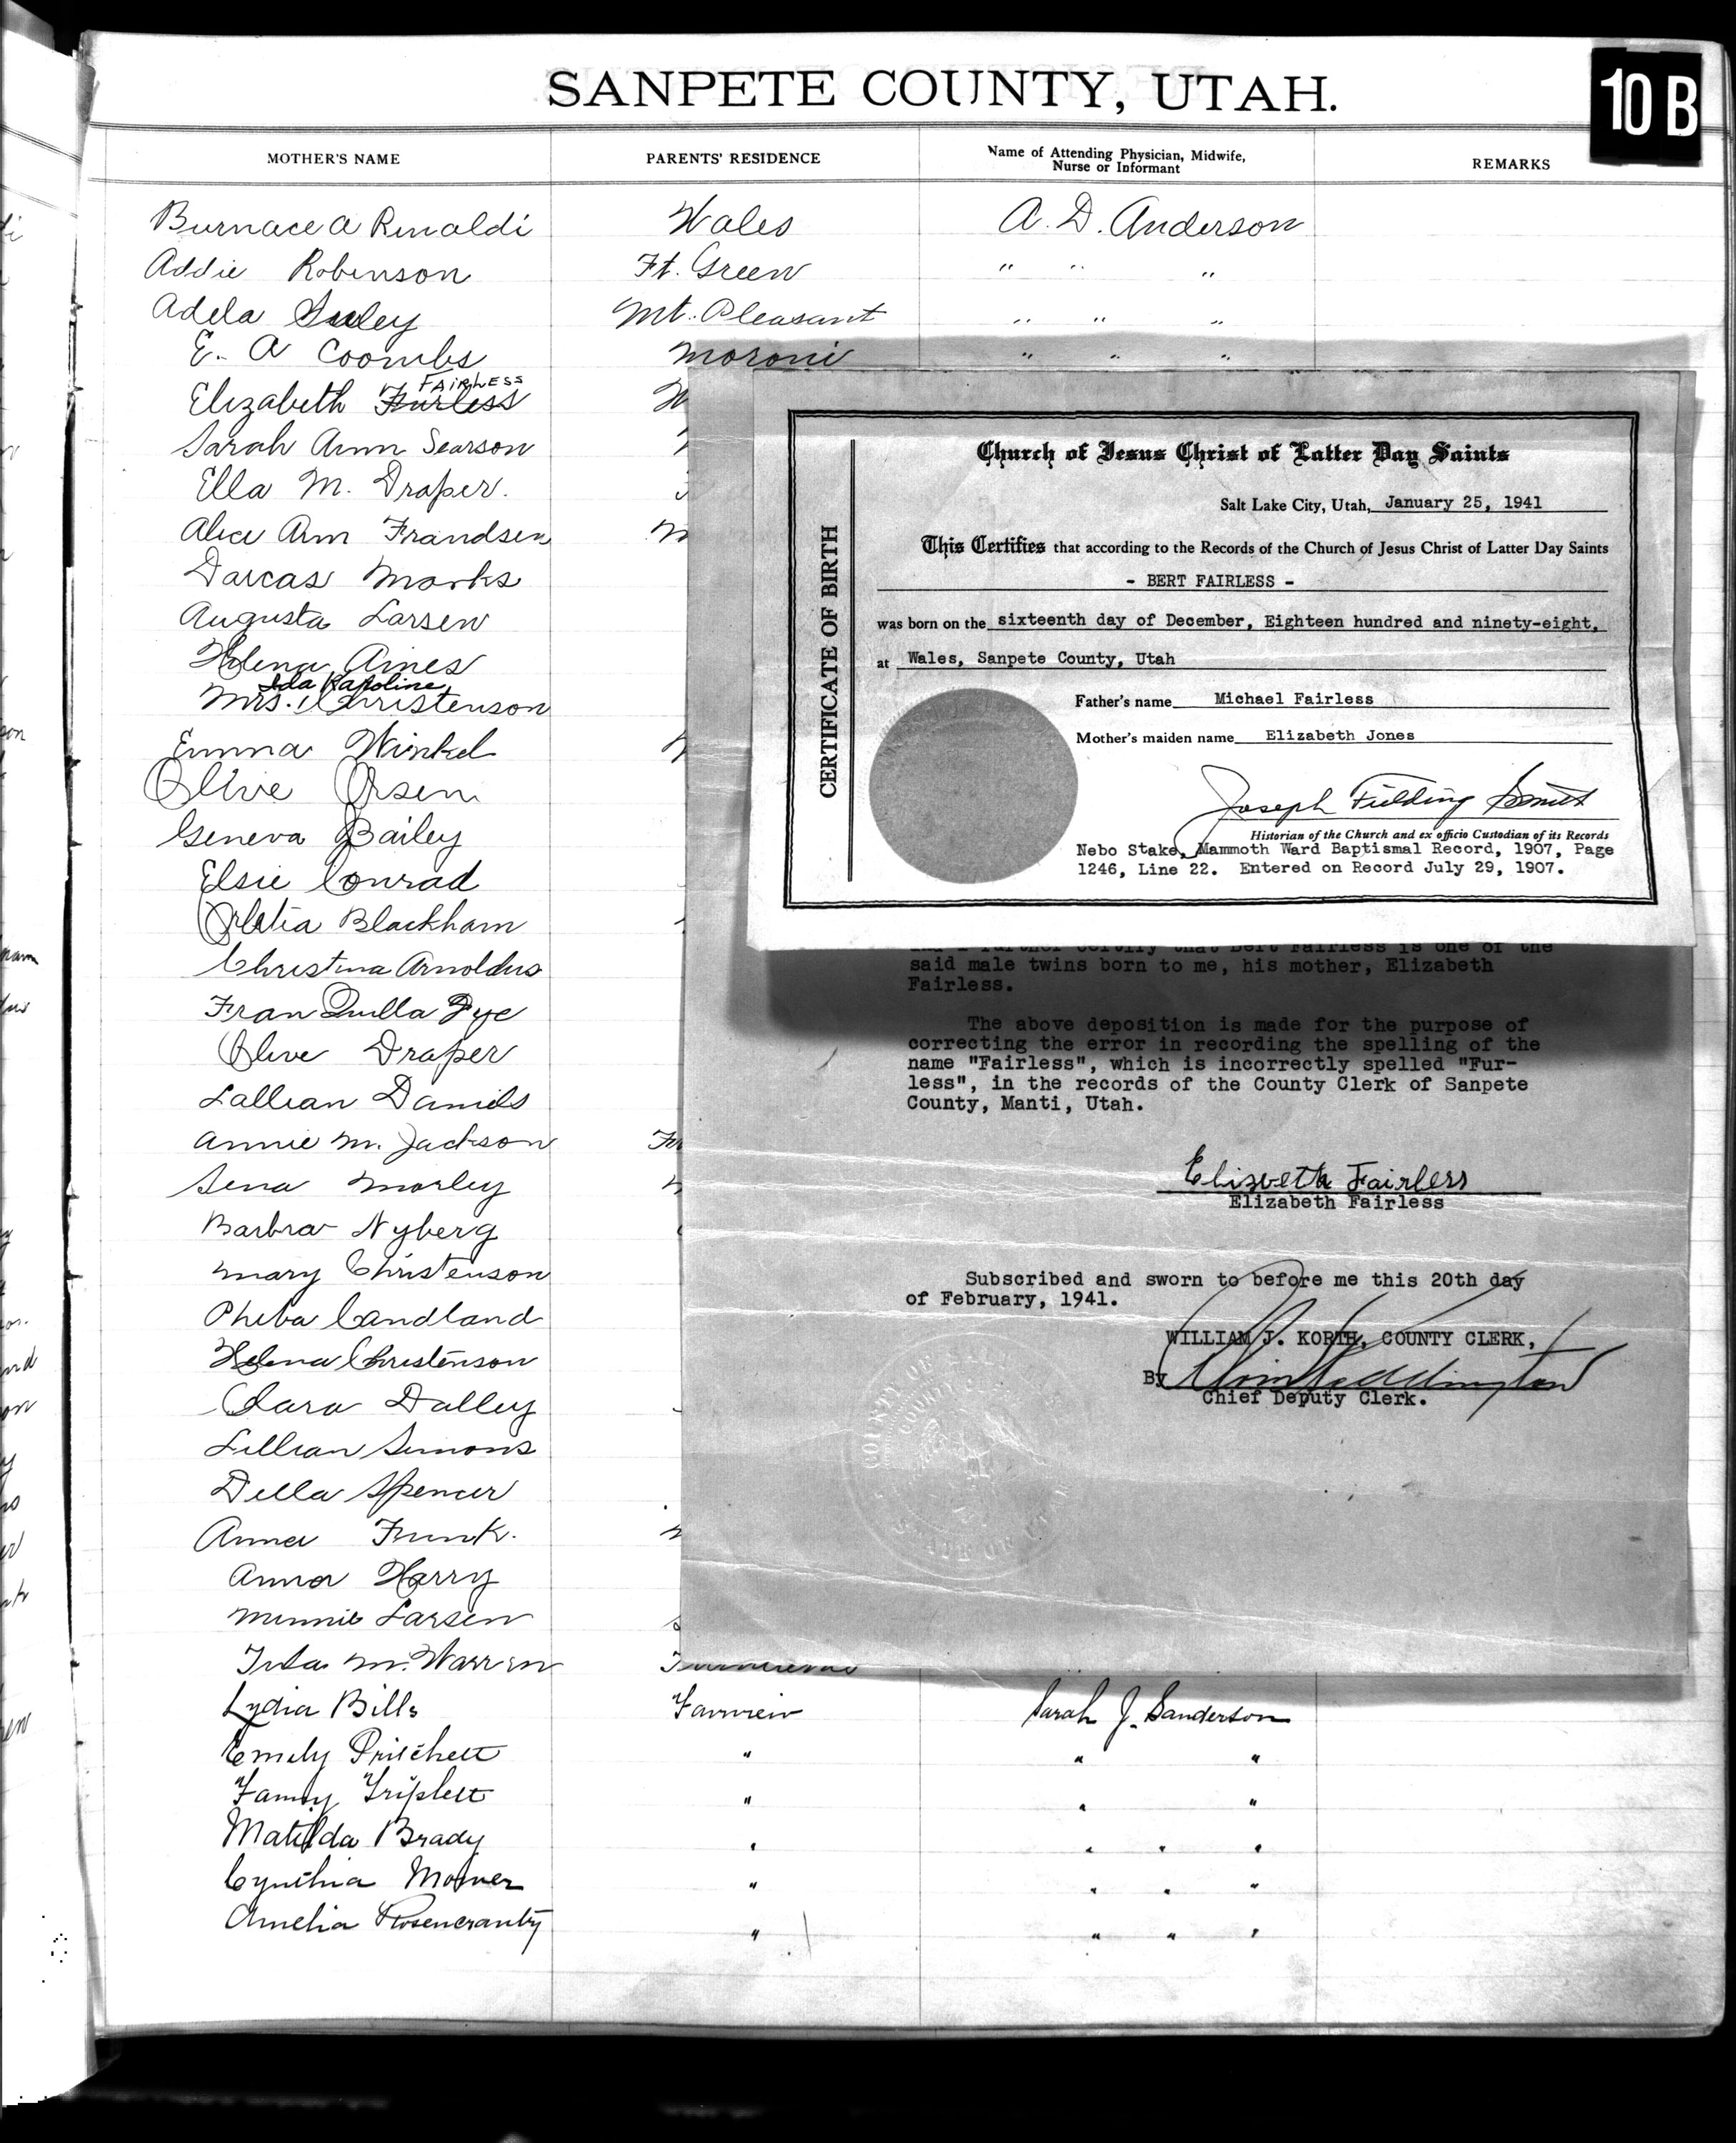 SANPETE COUNTY, UTAH.
10 B
MOTHER'S NAME PARENTS' RESIDENCE Name of Attending Physician, Midwife, Nurse or Informant REMARKS
Burnace A Rinaldi Wales A. D. Anderson
Addie Robinson Ft. Green " " "
Adela Seeley Mt. Pleasant " " "
E. A Coombs Moroni " " "
FAIRLESS
Elizabeth Furless
Sarah Ann Searson
Ella M. Draper.
Alice Ann Frandsen
Darcas Marks
Augusta Larsen
Helena Aines
Ida Karoline
Mrs. Christenson
Emma Winkel
Olive Orsen
Geneva Bailey
Elsie Conrad
Blackham
Christina Arnoldus
Fran Quilla Dye
Olive Draper
Lallian Daniels
Annie M. Jackson
Sena Morley
Barbra Nyberg
Mary Christenson
Pheba Candland
Helena Christenson
Clara Dalley
Lillian Simons
Della Spencer
Anna Funk.
Anna Harry
Minnie Larsen
M. Warren
Lydia Bills Fairview Sarah J. Sanderson
Emily Pritchett " " "
Fanny Triplett " " "
Matilda Brady " " " "
Cynthia Mower " " " "
Amelia Rosencrantz " " " "
CERTIFICATE OF BIRTH
Church of Jesus Christ of Latter Day Saints
Salt Lake City, Utah, January 25, 1941
This Certifies that according to the Records of the Church of Jesus Christ of Latter Day Saints
- BERT FAIRLESS -
was born on the sixteenth day of December, Eighteen hundred and ninety-eight,
at Wales, Sanpete County, Utah
Father's name Michael Fairless
Mother's maiden name Elizabeth Jones
Joseph Fielding Smith
Historian of the Church and ex officio Custodian of its Records
Nebo Stake, Mammoth Ward Baptismal Record, 1907, Page
1246, Line 22. Entered on Record July 29, 1907.
And I further certify that Bert Fairless is one of the
said male twins born to me, his mother, Elizabeth
Fairless.
The above deposition is made for the purpose of
correcting the error in recording the spelling of the
name "Fairless", which is incorrectly spelled "Fur-
less", in the records of the County Clerk of Sanpete
County, Manti, Utah.
Elizbeth Fairless
Elizabeth Fairless
Subscribed and sworn to before me this 20th day
of February, 1941.
WILLIAM J. KORTH, COUNTY CLERK,
By
Chief Deputy Clerk.
COUNTY OF
STATE OF UTAH